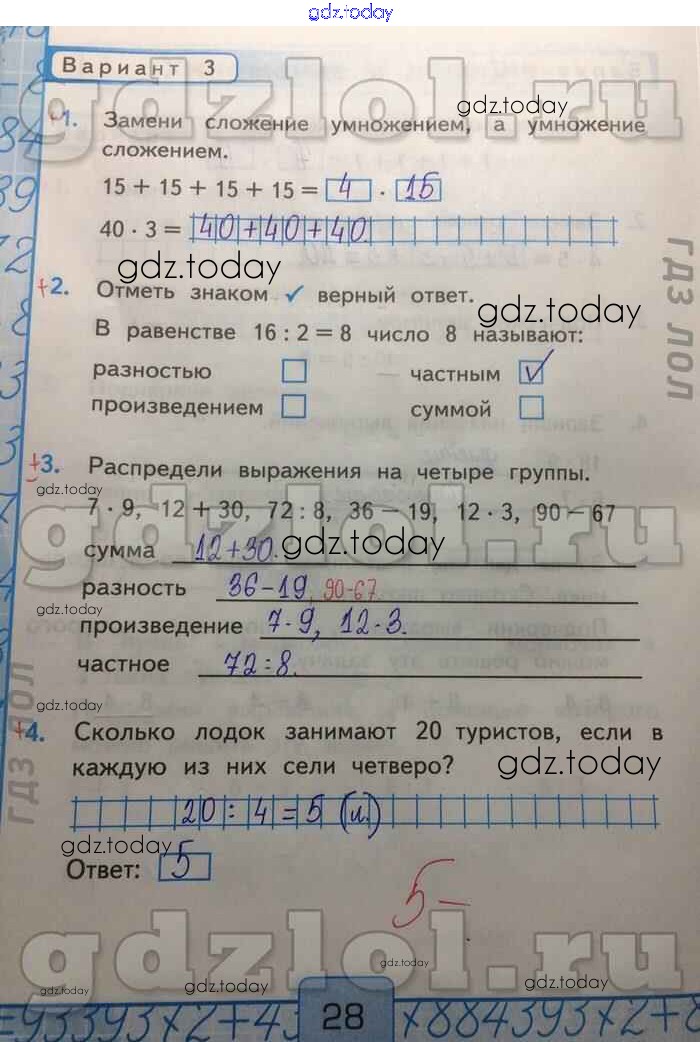 gdz.today
Вариант 3
gdzlol.ru
gdz.today
+1. Замени сложение умножением, а умножение
сложением.
15 + 15 + 15 + 15 = 4 · 15
40 · 3 = 40+40+40
gdz.today
гдз лол
+2. Отметь знаком ✓ верный ответ.
gdz.today
В равенстве 16 : 2 = 8 число 8 называют:
разностью □ частным ☑
произведением □ суммой □
+3. Распредели выражения на четыре группы.
gdz.today
7 · 9, 12 + 30, 72 : 8, 36 − 19, 12 · 3, 90 − 67
gdzlol.ru
сумма 12+30.
gdz.today
разность 36-19, 90-67
gdz.today
произведение 7·9, 12·3.
частное 72:8.
гдз лол
gdz.today
+4. Сколько лодок занимают 20 туристов, если в
каждую из них сели четверо?
gdz.today
20 : 4 = 5 (л.)
gdz.today
Ответ: 5
5-
gdzlol.ru
gdz.today
gdz.today
gdz.today
gdz.today
28